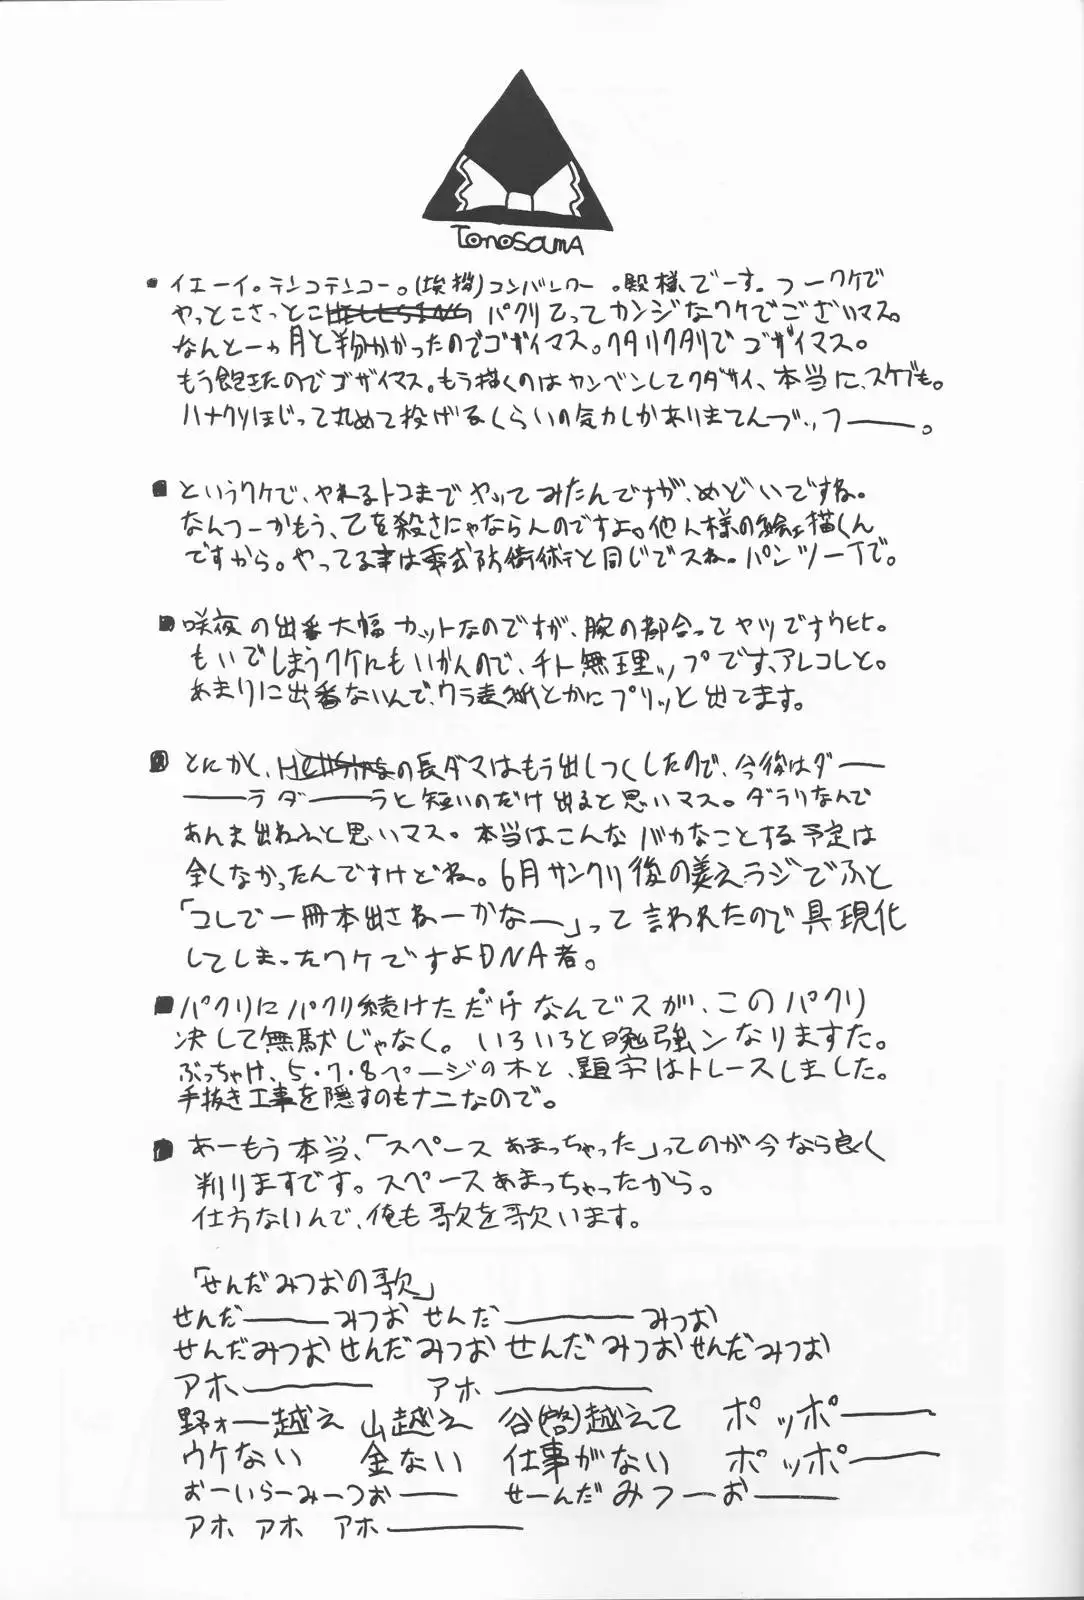 TonosamA
・イエーイ。テンコテンコー。(挨拶)コンバンワー。殿様でーす。つーワケで
やっとこさっとこHELLSINGパクリてってカンジなワケでございマス。
なんと一ヵ月と半分かかったのでゴザイマス。クタリクタリでゴザイマス。
もう飽きたのでゴザイマス。もう描くのはカンベンしてクダサイ、本当に、スケブも。
ハナクソほじって丸めて投げるくらいの気力しかありまてんブッフーー。
■というワケで、やれるトコまでヤッてみたんですが、めどいですね。
なんつーかもう、己を殺さにゃならんのですよ。他人様の絵描くん
ですから。やってる事は零式防衛術と同じでスね。パンツ一丁で。
■咲夜の出番大幅カットなのですが、腕の都合ってヤツですウヒヒ。
もいでしまうワケにもいかんので、チト無理ップです、アレコレと。
あまりに出番ないんで、ウラ表紙とかにプリッと出てます。
■とにかく、Hellsingの長ダマはもう出しつくしたので、今後はダー
ーーラダーーラと短いのだけ出ると思いマス。ダラリなんで
あんま出ねえと思いマス。本当はこんなバカなことする予定は
全くなかったんですけどね。6月サンクリ後の美えラジでふと
「コレで一冊本出さねーかなー」って言われたので具現化
してしまったワケですよDNA者。
■パクリにパクリ続けただけなんでスが、このパクリ
決して無駄じゃなく。いろいろと勉強ンなりますた。
ぶっちゃけ、5・7・8ページの木と、題字はトレースしました。
手抜き工事を隠すのもナニなので。
■あーもう本当、「スペースあまっちゃった」ってのが今なら良く
判りますです。スペースあまっちゃったから。
仕方ないんで、俺も歌を歌います。
「せんだみつおの歌」
せんだーーみつお せんだーーみつお
せんだみつお せんだみつお せんだみつお せんだみつお
アホーー アホーー
野ォー越え 山越え 谷(啓)越えて ポッポーー
ウケない 金ない 仕事がない ポッポーー
おーいらーみーつおーー せーんだみつーおーー
アホ アホ アホーー